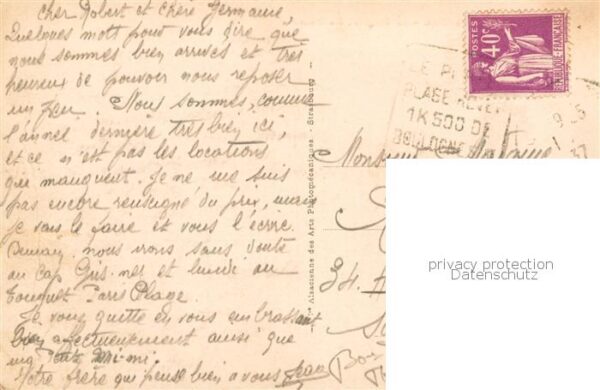 Cher Robert et chère Germaine,
Quelques mots pour vous dire que
nous sommes bien arrivés et très
heureux de pouvoir nous reposer
un peu. Nous sommes, comme
l'année dernière très bien ici,
et ce n'est pas les locations
qui manquent. Je ne me suis
pas encore renseigné du prix, mais
je vais le faire et vous l'écrire.
Demain nous irons sans doute
au cap Gris-nez et lundi au
Touquet Paris Plage.
Je vous quitte en vous embrassant
bien affectueusement ainsi que
Mi-mi.
Votre frère qui pense bien à vous Jean
Alsacienne des Arts Photomécaniques - Strasbourg
POSTES
40c
REPUBLIQUE FRANÇAISE
LE P
PLAGE
1K500 DE
BOULOGNE
37
Monsieur
34.
privacy protection
Datenschutz